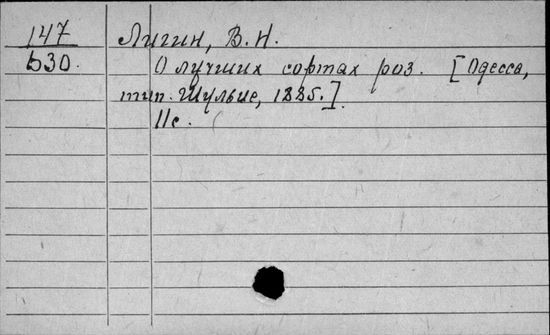 147 Лигин, В. Н.
630. О лучших сортах роз. [Одесса,
тип. Шульце, 1885.].
11с.